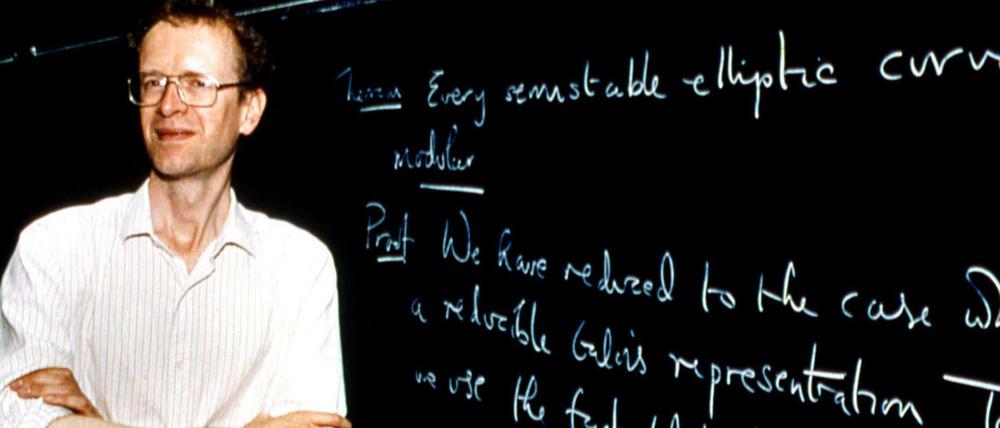 Theorem Every semistable elliptic curv
modular
Proof We have reduced to the case
a reducible Galois representation
we use the fact